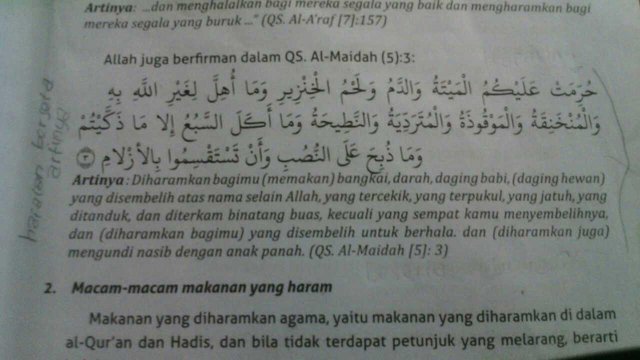 Artinya: ...dan menghalalkan bagi mereka segala yang baik dan mengharamkan bagi
mereka segala yang buruk ..." (QS. Al-A'raf [7]:157)
Allah juga berfirman dalam QS. Al-Maidah (5):3:
حُرِّمَتْ عَلَيْكُمُ الْمَيْتَةُ وَالدَّمُ وَلَحْمُ الْخِنْزِيرِ وَمَا أُهِلَّ لِغَيْرِ اللَّهِ بِهِ
وَالْمُنْخَنِقَةُ وَالْمَوْقُوذَةُ وَالْمُتَرَدِّيَةُ وَالنَّطِيحَةُ وَمَا أَكَلَ السَّبُعُ إِلَّا مَا ذَكَّيْتُمْ
وَمَا ذُبِحَ عَلَى النُّصُبِ وَأَنْ تَسْتَقْسِمُوا بِالْأَزْلَامِ ٣
Artinya: Diharamkan bagimu (memakan) bangkai, darah, daging babi, (daging hewan)
yang disembelih atas nama selain Allah, yang tercekik, yang terpukul, yang jatuh, yang
ditanduk, dan diterkam binatang buas, kecuali yang sempat kamu menyembelihnya,
dan (diharamkan bagimu) yang disembelih untuk berhala. dan (diharamkan juga)
mengundi nasib dengan anak panah. (QS. Al-Maidah [5]: 3)
2. Macam-macam makanan yang haram
Makanan yang diharamkan agama, yaitu makanan yang diharamkan di dalam
al-Qur'an dan Hadis, dan bila tidak terdapat petunjuk yang melarang, berarti
artinya